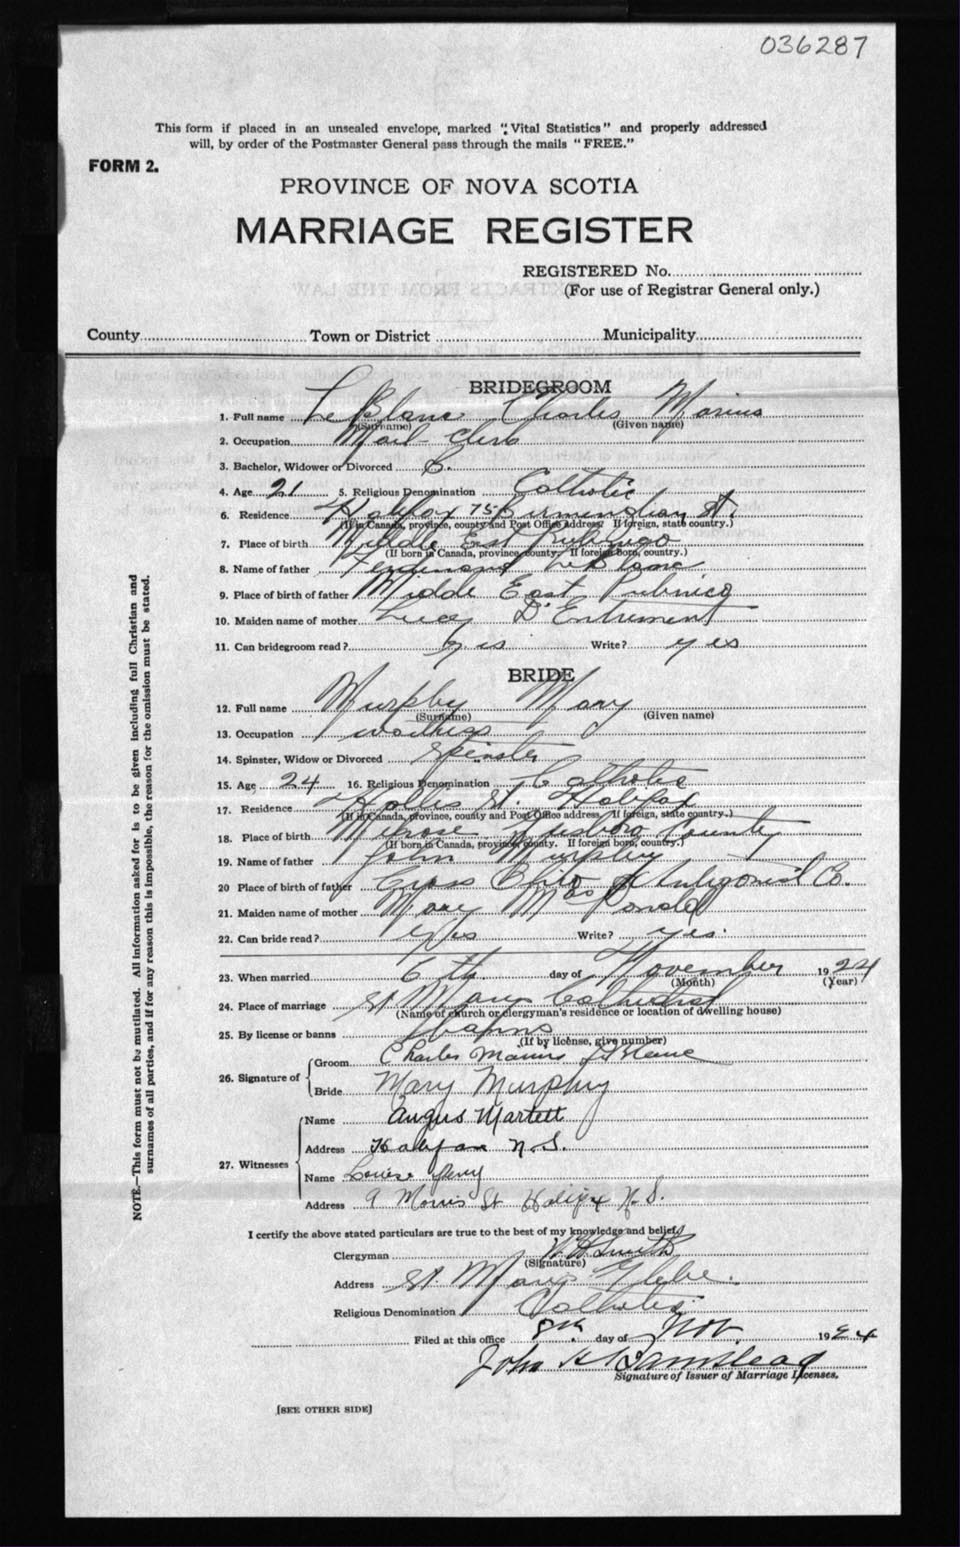 036287
This form if placed in an unsealed envelope, marked "Vital Statistics" and properly addressed
will, by order of the Postmaster General pass through the mails "FREE."
FORM 2.
PROVINCE OF NOVA SCOTIA
MARRIAGE REGISTER
REGISTERED No.
(For use of Registrar General only.)
County Town or District Municipality
BRIDEGROOM
1. Full name LeBlanc Charles Marius
(Surname) (Given name)
2. Occupation Mail Clerk
3. Bachelor, Widower or Divorced B.
4. Age 21 5. Religious Denomination Catholic
6. Residence Halifax 75 St.
(If in Canada, province, county and Post Office address. If foreign, state country.)
7. Place of birth Middle East Pubnico
(If born in Canada, province, county. If foreign born, country.)
8. Name of father LeBlanc
9. Place of birth of father Middle East Pubnico
10. Maiden name of mother Lucy D'Entremont
11. Can bridegroom read? yes Write? yes
BRIDE
12. Full name Murphy Mary
(Surname) (Given name)
13. Occupation waitress
14. Spinster, Widow or Divorced Spinster
15. Age 24 16. Religious Denomination Catholic
17. Residence Hollis St. Halifax
(If in Canada, province, county and Post Office address. If foreign, state country.)
18. Place of birth Melrose County
(If born in Canada, province, county. If foreign born, country.)
19. Name of father John Murphy
20 Place of birth of father Antigonish Co.
21. Maiden name of mother Mary MacDonald
22. Can bride read? Yes Write? yes.
23. When married 6th day of November 1924
(Month) (Year)
24. Place of marriage St Marys Cathedral
(Name of church or clergyman's residence or location of dwelling house)
25. By license or banns banns
(If by license, give number)
26. Signature of Groom Charles Marius LeBlanc
Bride Mary Murphy
27. Witnesses Name Angus Martell
Address Halifax N.S.
Name Louise
Address 9 Morris St Halifax N.S.
I certify the above stated particulars are true to the best of my knowledge and belief.
Clergyman W Smith
(Signature)
Address St. Marys Glebe.
Religious Denomination Catholic
Filed at this office 8th day of Nov. 1924
John H Barnstead
Signature of Issuer of Marriage Licenses.
[SEE OTHER SIDE]
NOTE.—This form must not be mutilated. All information asked for is to be given including full Christian and
surnames of all parties, and if for any reason this is impossible, the reason for the omission must be stated.